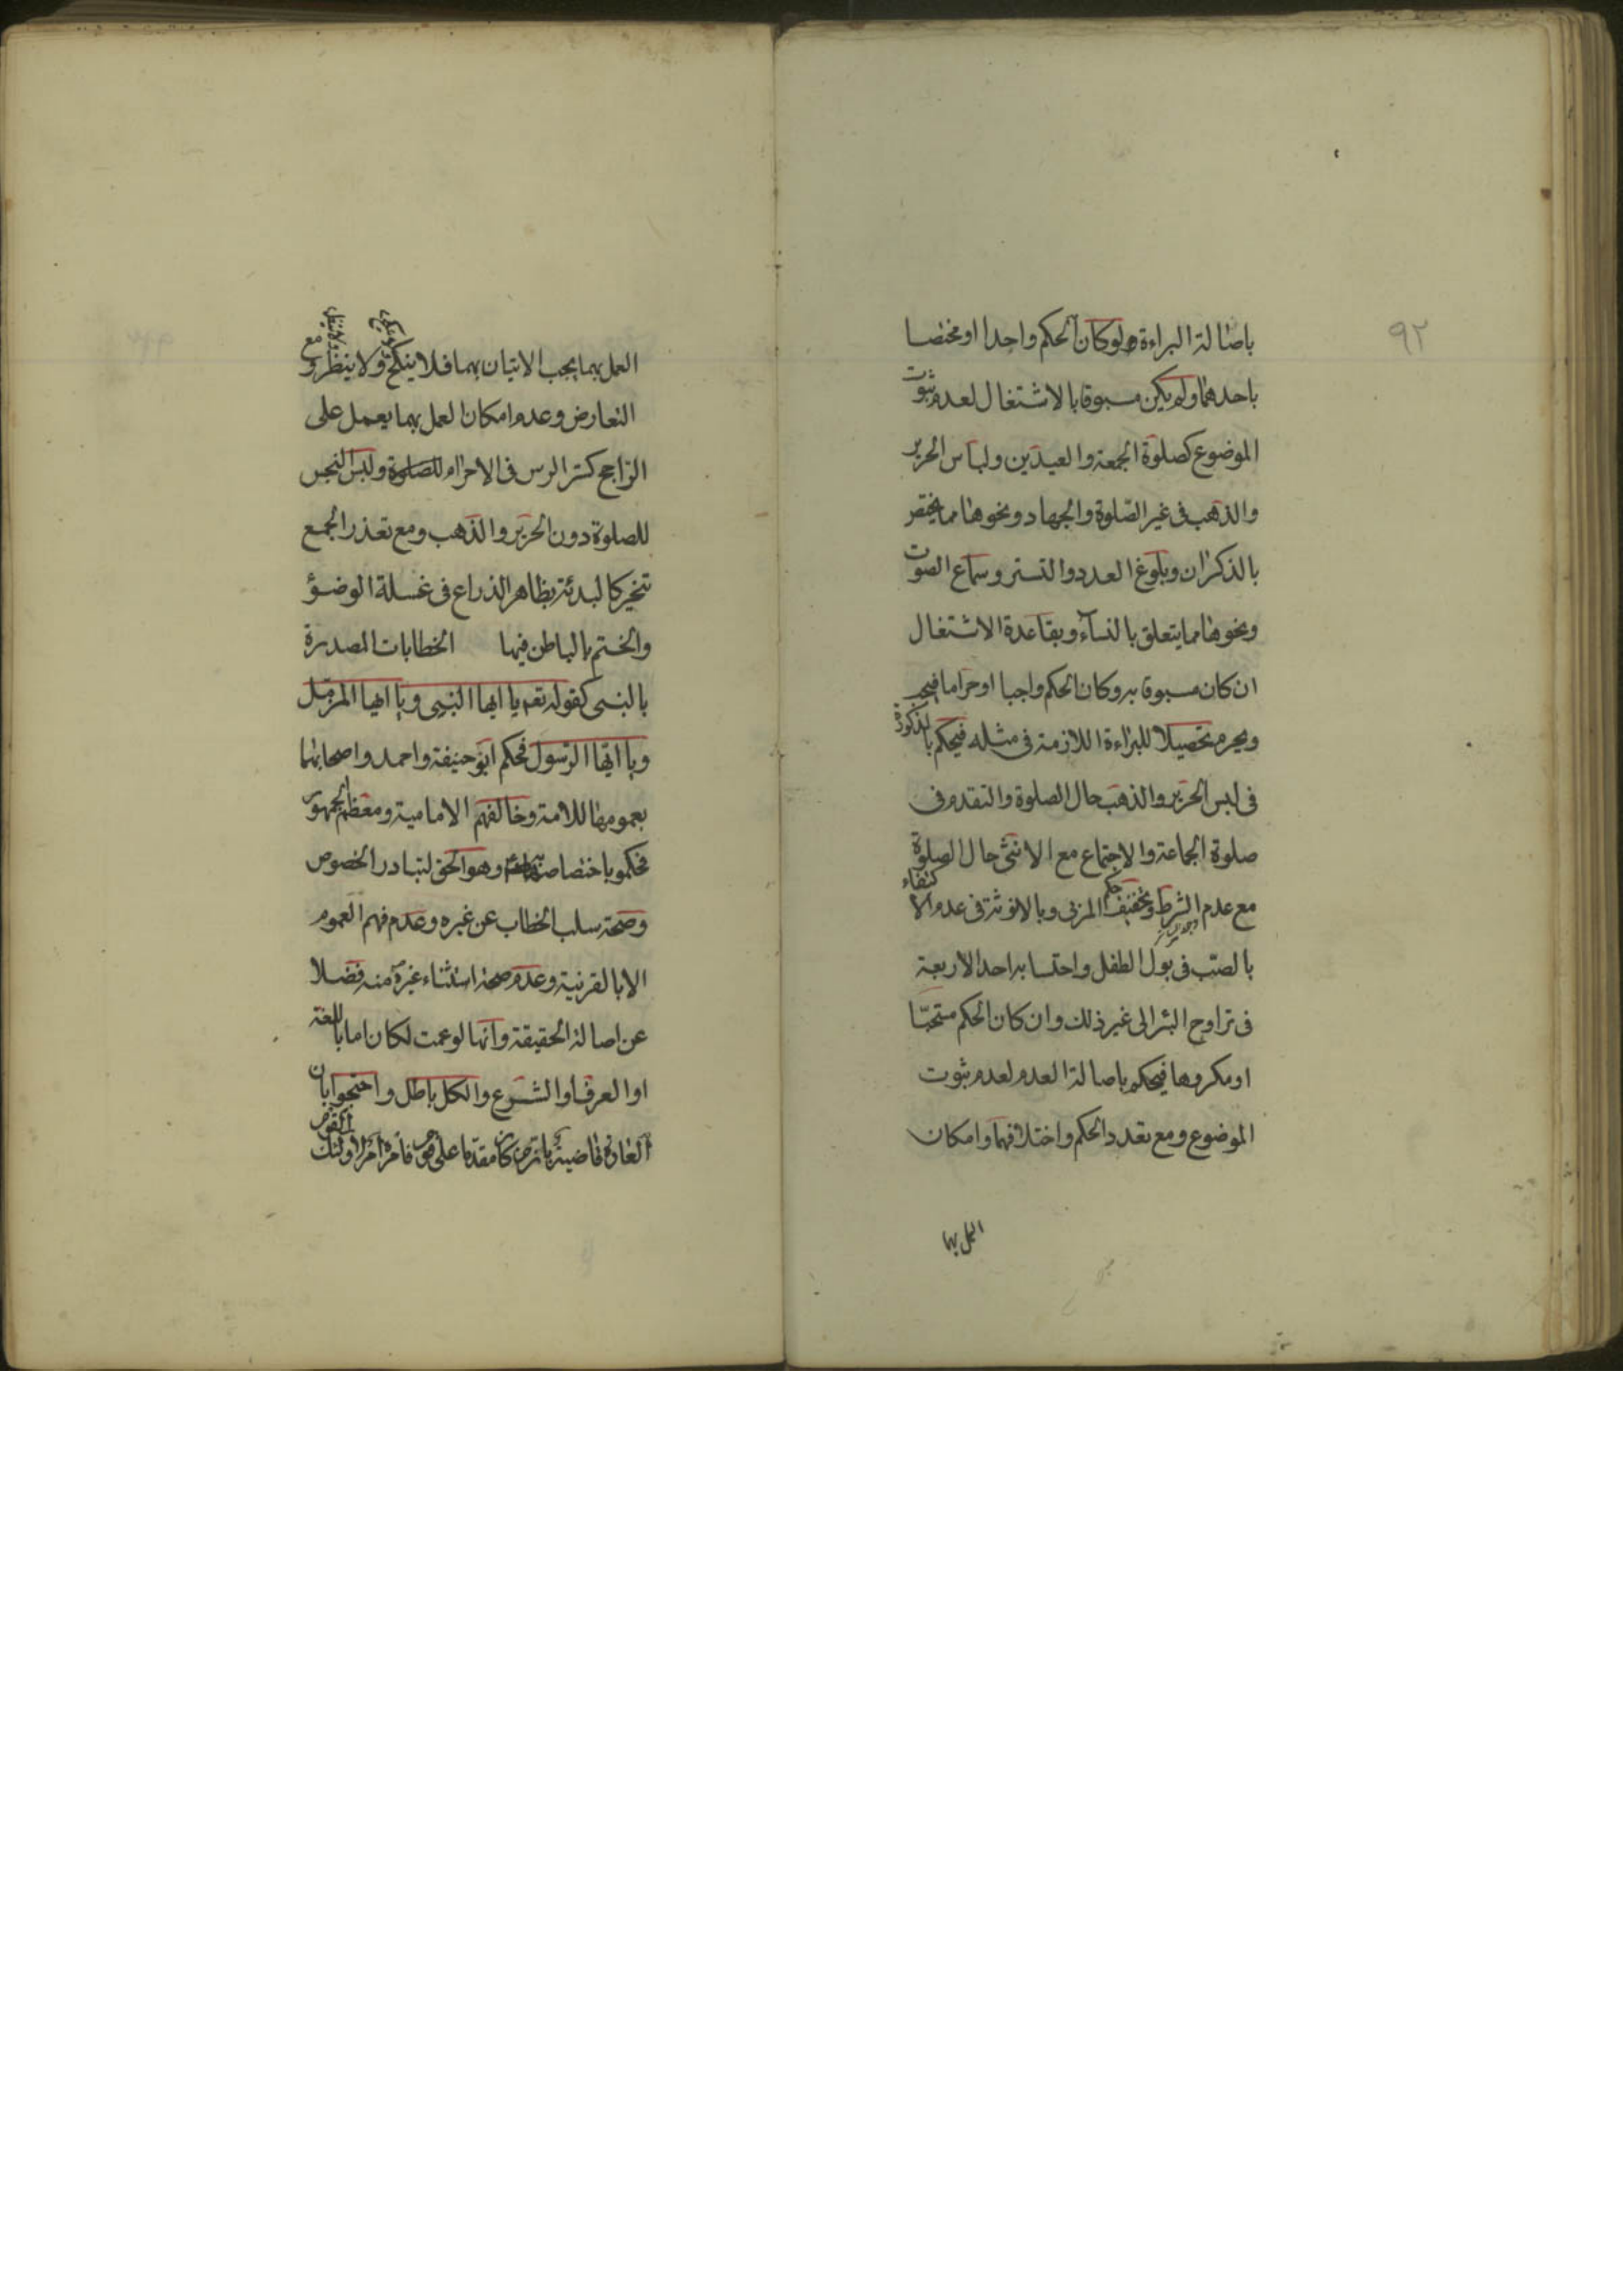 ٩٢
باصالة البراءة ولو كان الحكم واحدا او مختصا
باحدهما ولم يكن مسبوقا بالاشتغال لعدم ثبوت
الموضوع كصلوة الجمعة والعيدين ولباس الحرير
والذهب فى غير الصلوة والجهاد ونحوها مما يختص
بالذكران وبلوغ العدد والتستر وسماع الصوت
ونحوها مما يتعلق بالنساء وبقاعدة الاشتغال
ان كان مسبوقا به وكان الحكم واجبا او حراما فيجب
ويحرم تحصيلا للبراءة اللازمة فى مثله فيحكم بالذكورة
فى لبس الحرير والذهب حال الصلوة والتقدم فى
صلوة الجماعة والاجتماع مع الانثى حال الصلوة
مع عدم الشرط وتخفيف حكم المربى وبالانوثة فى عدم الاكتفاء
بالصب فى بول الطفل واحتسابه احد الاربعة
فى تراوح البئر الى غير ذلك وان كان الحكم مستحبا
او مكروها فيحكم باصالة العدم لعدم ثبوت
الموضوع ومع تعدد الحكم واختلافهما وامكان
العمل بهما
العمل بهما يجب الاتيان بهما فلا ينكح ولا ينظر و مع
التعارض وعدم امكان العمل بهما يعمل على
الراجح كستر الرس فى الاحرام للصلوة ولبس النجس
للصلوة دون الحرير والذهب ومع تعذر الجمع
تخير كالبدئة بظاهر الذراع فى غسلة الوضؤ
والختم بالباطن فيها الخطابات المصدرة
بالنبى كقوله تعم يا ايها النبى ويا ايها المزمل
ويا ايها الرسول فحكم ابو حنيفة واحمد واصحابهما
بعمومها للامة وخالفهم الامامية ومعظم الجمهور
فحكمو باختصاصه وهو الحق لتبادر الخصوص
وصحة سلب الخطاب عن غيره وعدم فهم العموم
الا بالقرنية وعدم صحة استثناء غيره منه فضلا
عن اصالة الحقيقة وانها لو عمت لكان اما باللغة
او العرف او الشرع والكل باطل واحتجوا بان
العادة قاضية بان من كان مقدما على قوم فامره امر لاولئك القوم